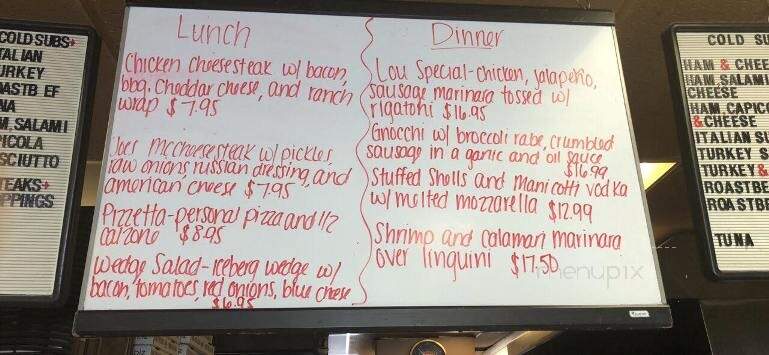 COLD SUBS+
TALIAN
URKEY
OASTB EF
NA
M, SALAMI
ICOLA
SCIUTTO
EAKS+
PPINGS
Lunch
Chicken cheesesteak w/ bacon,
bbq, cheddar cheese, and ranch
wrap $7.95
Joes Mccheesesteak w/ pickles,
raw onions, russian dressing, and
american cheese $7.95
Pizzetta-personal pizza and 1/2
calzone $8.95
Wedge Salad-iceberg wedge w/
bacon, tomatoes, red onions, blue cheese
$6.95
Dinner
Lou Special-chicken, jalapeño,
sausage marinara tossed w/
rigatoni $16.95
Gnocchi w/ broccoli rabe, crumbled
sausage in a garlic and oil sauce
$16.99
Stuffed Shells and Manicotti vodka
w/ melted mozzarella $12.99
Shrimp and calamari marinara
over linguini $17.50
menupix
COLD SU
HAM & CHEE
HAM, SALAMI
CHEESE
HAM, CAPICO
& CHEESE
ITALIAN SU
TURKEY S
TURKEY &
ROASTBE
ROASTBE
TUNA